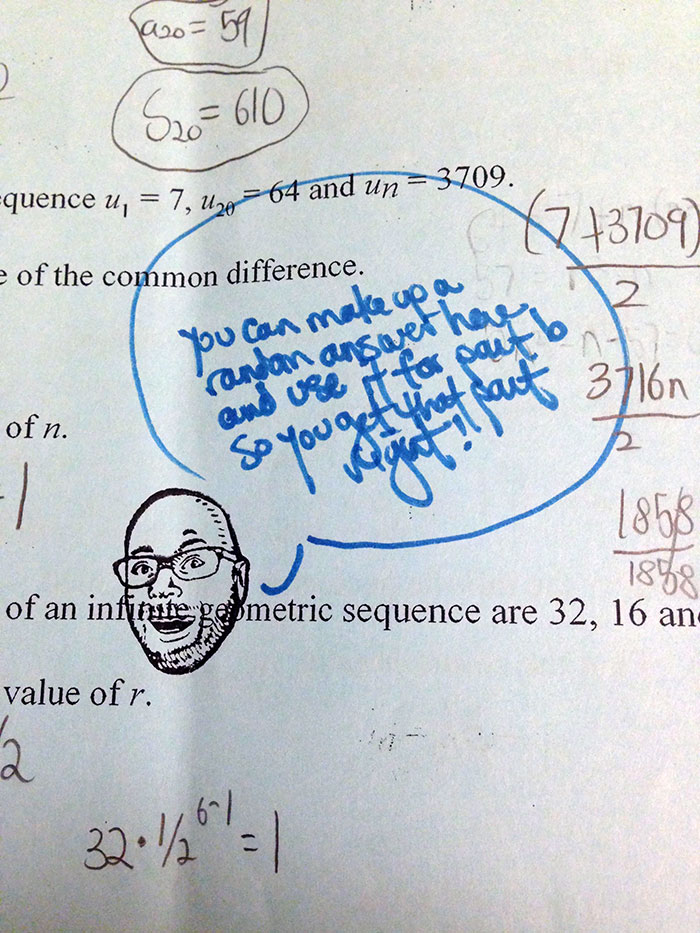 a20 = 59
S20 = 610
equence u1 = 7, u20 = 64 and un = 3709.
(7+3709)
2
e of the common difference.
you can make up a
randon answer here
and use it for part b
so you get that part
right!
3716n
2
of n.
1858
1858
of an infinite geometric sequence are 32, 16 an
value of r.
/2
32 · 1/2 6-1 = 1